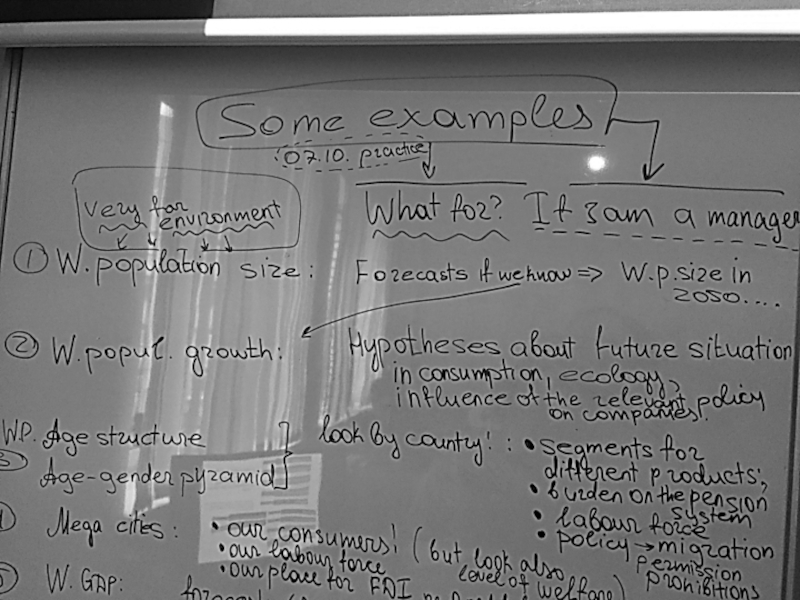 Some examples
07.10. practice
Very far
environment
What for? If I am a manager
① W. population size: Forecasts if we know => W.p.size in
2050....
② W. popul. growth: Hypotheses about future situation
in consumption, ecology,
influence of the relevant policy
on companies.
W.P. Age structure
Age-gender pyramid
look by county! :
• segments for
different products;
• burden on the pension
system
• labour force
• policy → migration
permission
prohibitions
Mega cities: • our consumers! (but look also
level of welfare)
• our labour force
• our place for FDI
W. GDP: